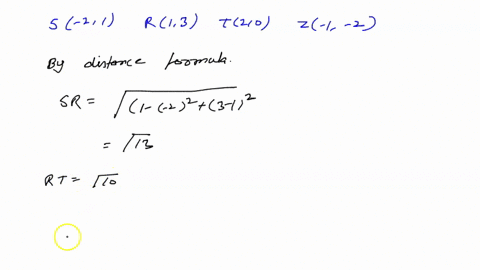 S(-2,1) R(1,3) T(2,0) Z(-1,-2)
By distance formula.
SR = √(1-(-2)²+(3-1)²
= √13
RT = √10